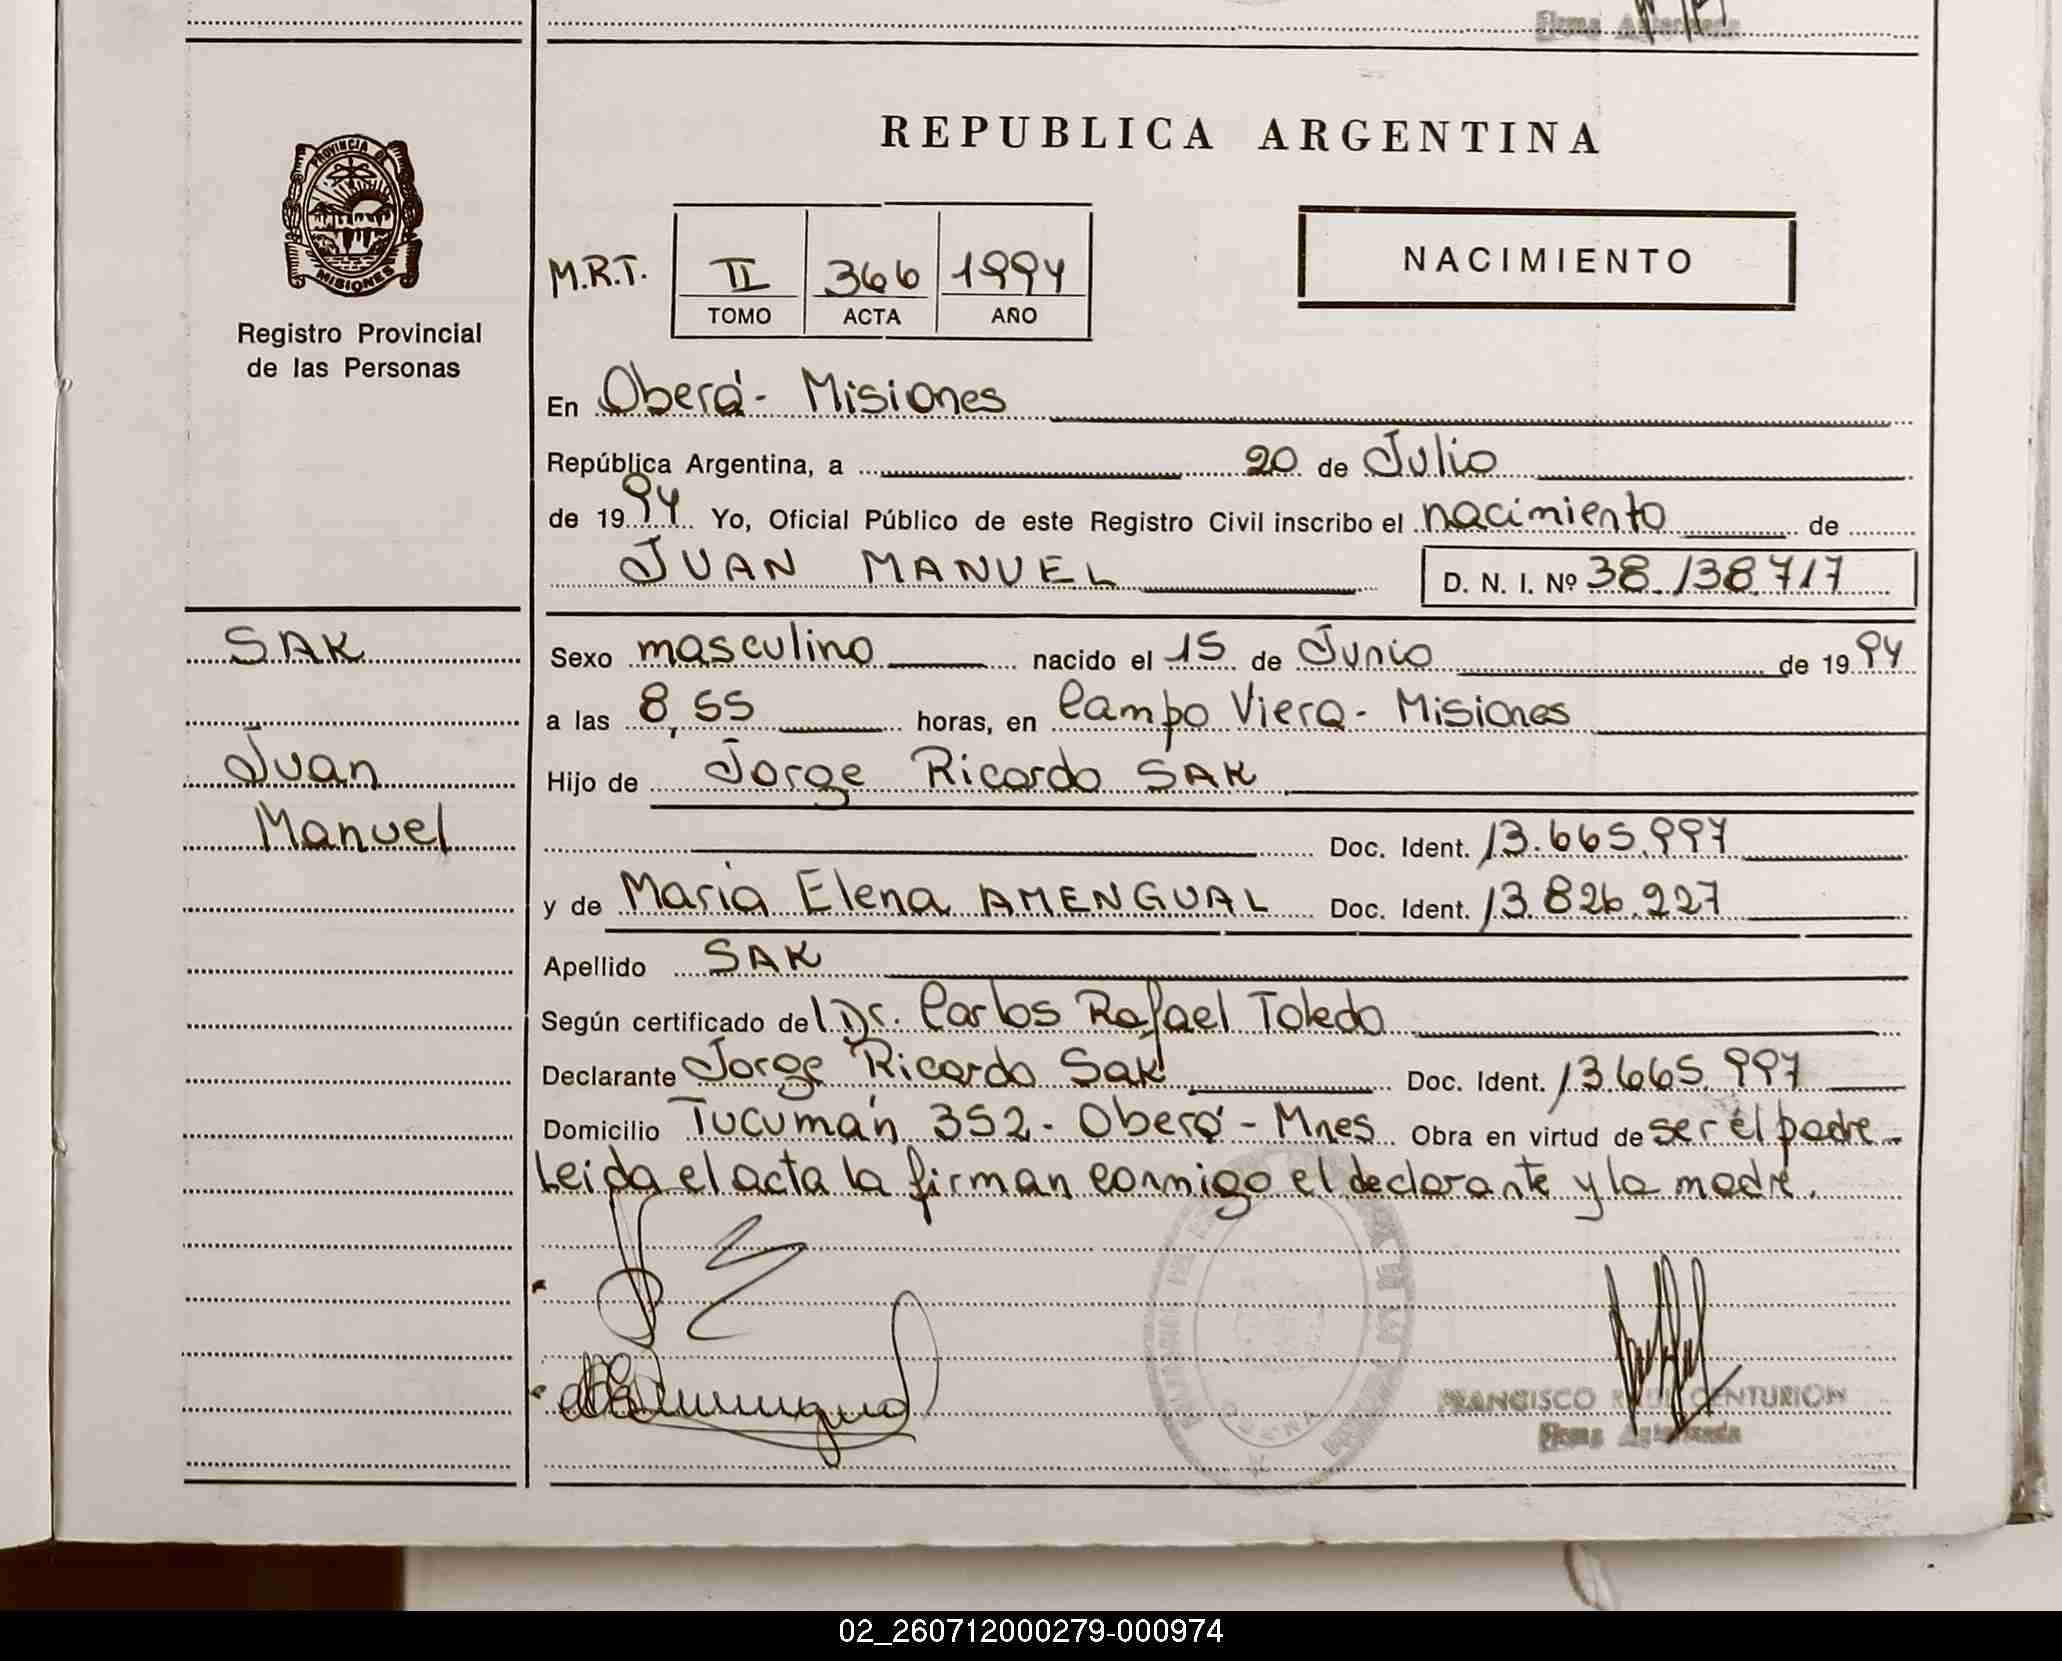 Firma Autorizada
PROVINCIA DE
MISIONES
Registro Provincial
de las Personas
REPUBLICA ARGENTINA
M.R.T. II 366 1994
TOMO ACTA AÑO
NACIMIENTO
En Oberá - Misiones
República Argentina, a 20 de Julio
de 1994 Yo, Oficial Público de este Registro Civil inscribo el nacimiento de
JUAN MANUEL D. N. I. Nº 38.138.717
SAK
Juan
Manuel
Sexo masculino nacido el 15 de Junio de 1994
a las 8,55 horas, en Campo Viera - Misiones
Hijo de Jorge Ricardo SAK
Doc. Ident. 13.665.997
y de María Elena AMENGUAL Doc. Ident. 13.826.227
Apellido SAK
Según certificado del Dr. Carlos Rafael Toledo
Declarante Jorge Ricardo Sak Doc. Ident. 13.665.997
Domicilio Tucumán 352 - Oberá - Mnes Obra en virtud de ser él padre
Leida el acta la firman conmigo el declarante y la madre.
FRANCISCO RAUL CENTURION
Firma Autorizada
02_260712000279-000974